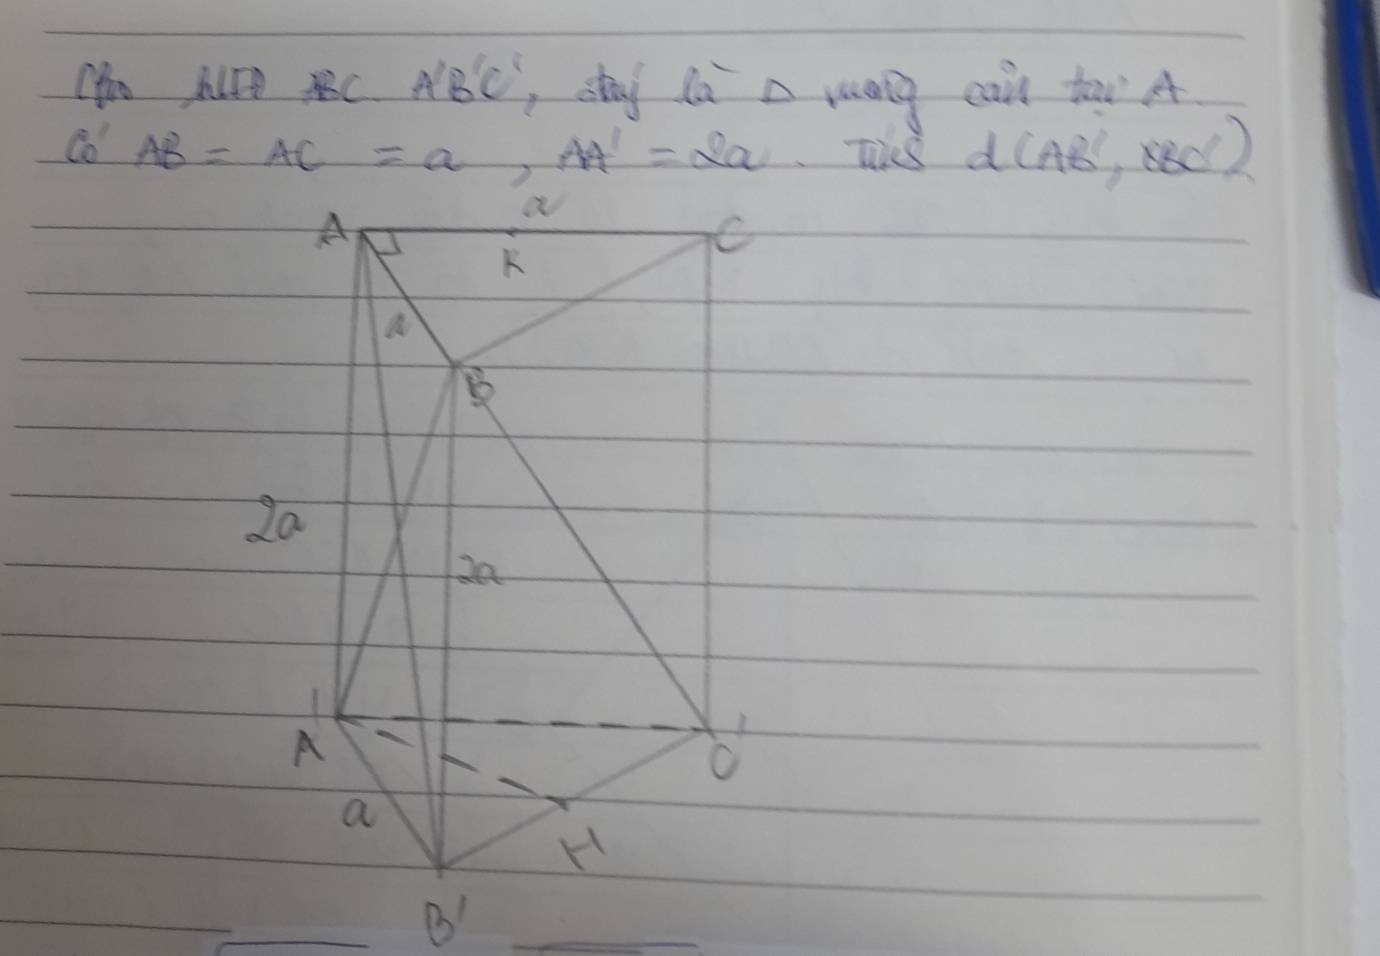 Cho hLTĐ ABC. A'B'C', đáy là Δ vuông cân tại A.
Có AB = AC = a, AA' = 2a. Tính d(AB', BC')
a
A
C
K
a
B
2a
2a
A'
C'
a
H
B'